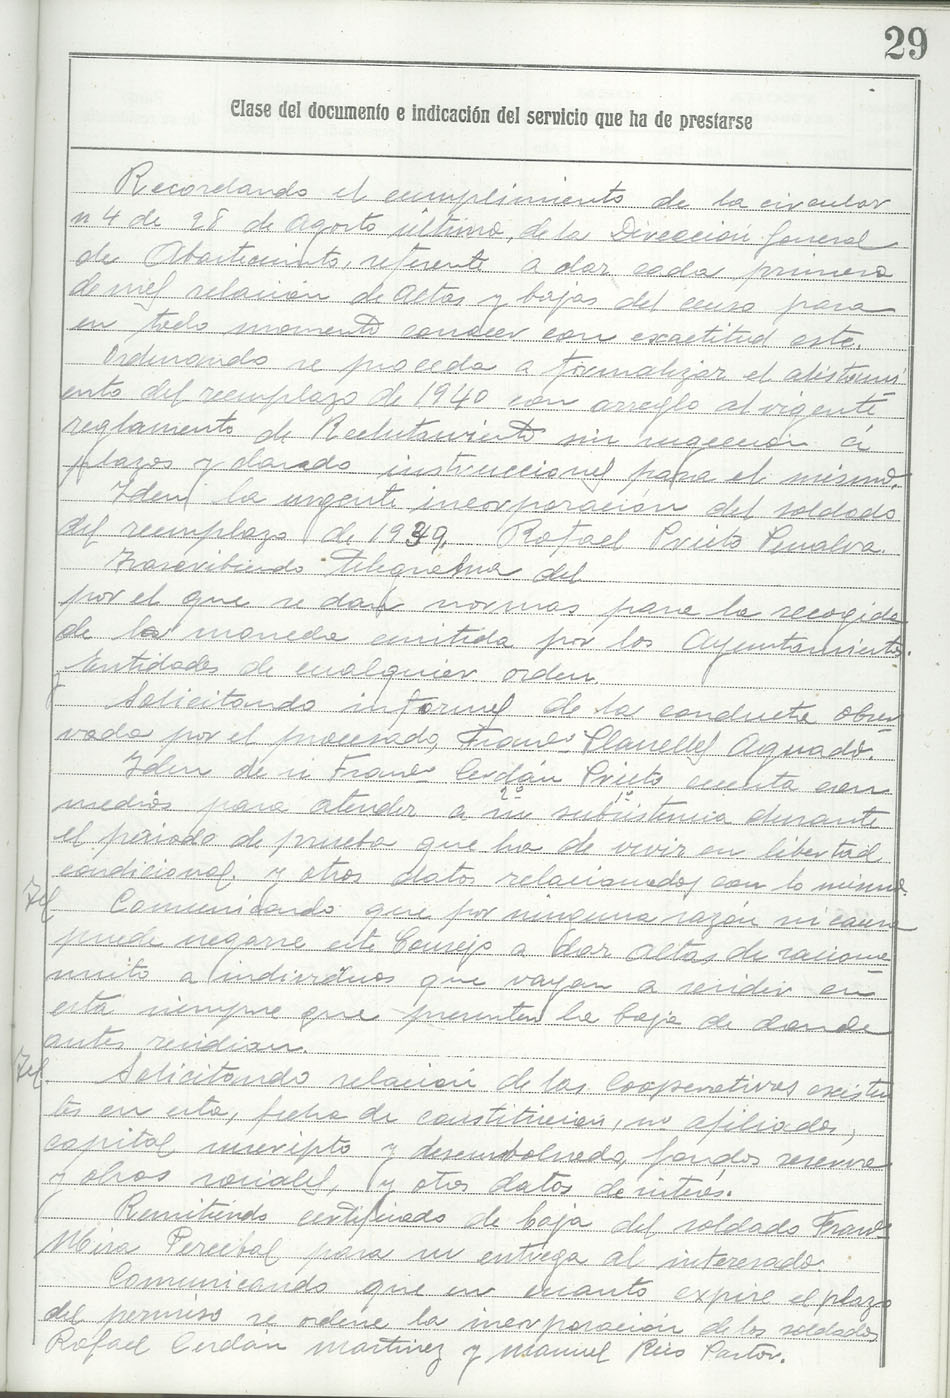 29
Clase del documento e indicación del servicio que ha de prestarse
Recordando el cumplimiento de la circular
n 4 de 28 de Agosto último, de la Dirección General
de Abastecimto, referente a dar cada primero
de mes relación de altas y bajas del censo para
en todo momento conocer con exactitud este.
Ordenando se proceda a formalizar el alistami
ento del reemplazo de 1940 con arreglo al vigente
reglamento de Reclutamiento sin sugección a
plazos y dando instrucciones para el mismo.
Idem la urgente incorporación del soldado
del reemplazo de 1939, Rafael Prieto Penalva.
Transcribiendo telegrama del
por el que se dan normas para la recogida
de la moneda emitida por los Ayuntamientos.
y Entidades de cualquier orden.
Solicitando informes de la conducta obser
vada por el procesado, Franco Planelles Aguado.
Idem de si Franco Cerdán Prieto cuenta con
medios para atender a su subsistencia durante
el período de prueba que ha de vivir en libertad
condicional. y otros datos relacionados con lo mismo.
Tel Comunicando que por ninguna razón ni causa
puede negarse este Consejo a dar altas de raciona
miento a individuos que vayan a residir en
esta siempre que presenten la baja de donde
antes residian.
Tel. Solicitando relación de las Cooperativas existen
tes en esta, fecha de constitucion, no afiliados,
capital suscripto y desembolsado, fondos reserva
y obras sociales, y otros datos de interés.
Remitiendo certificado de baja del soldado Franco
Mira Percibal para su entrega al interesado.
Comunicando que en cuanto expire el plazo
del permiso se ordene la incorporación de los soldados
Rafael Cerdán Martinez y Manuel Rico Pastor.